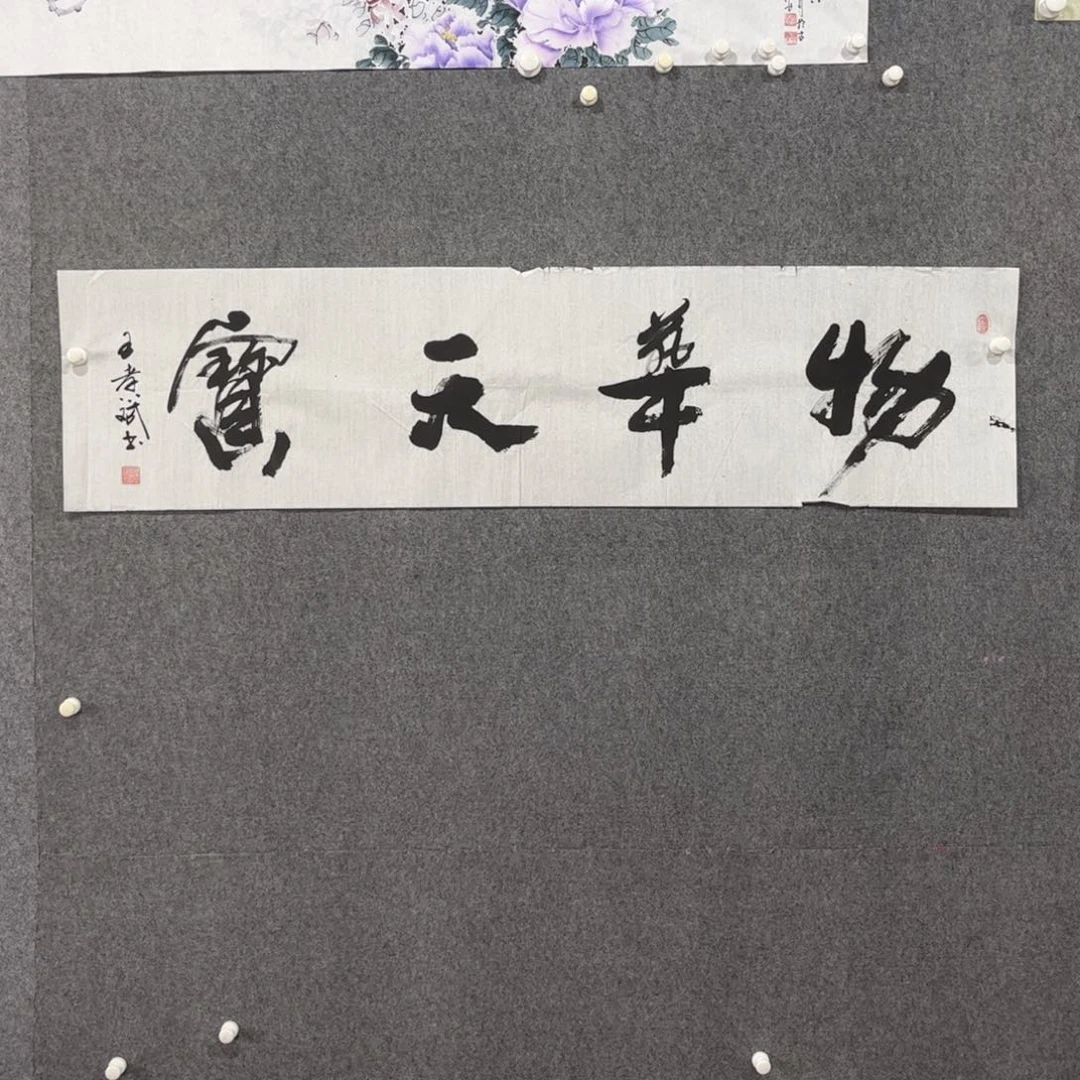 物華天寶
王孝斌书